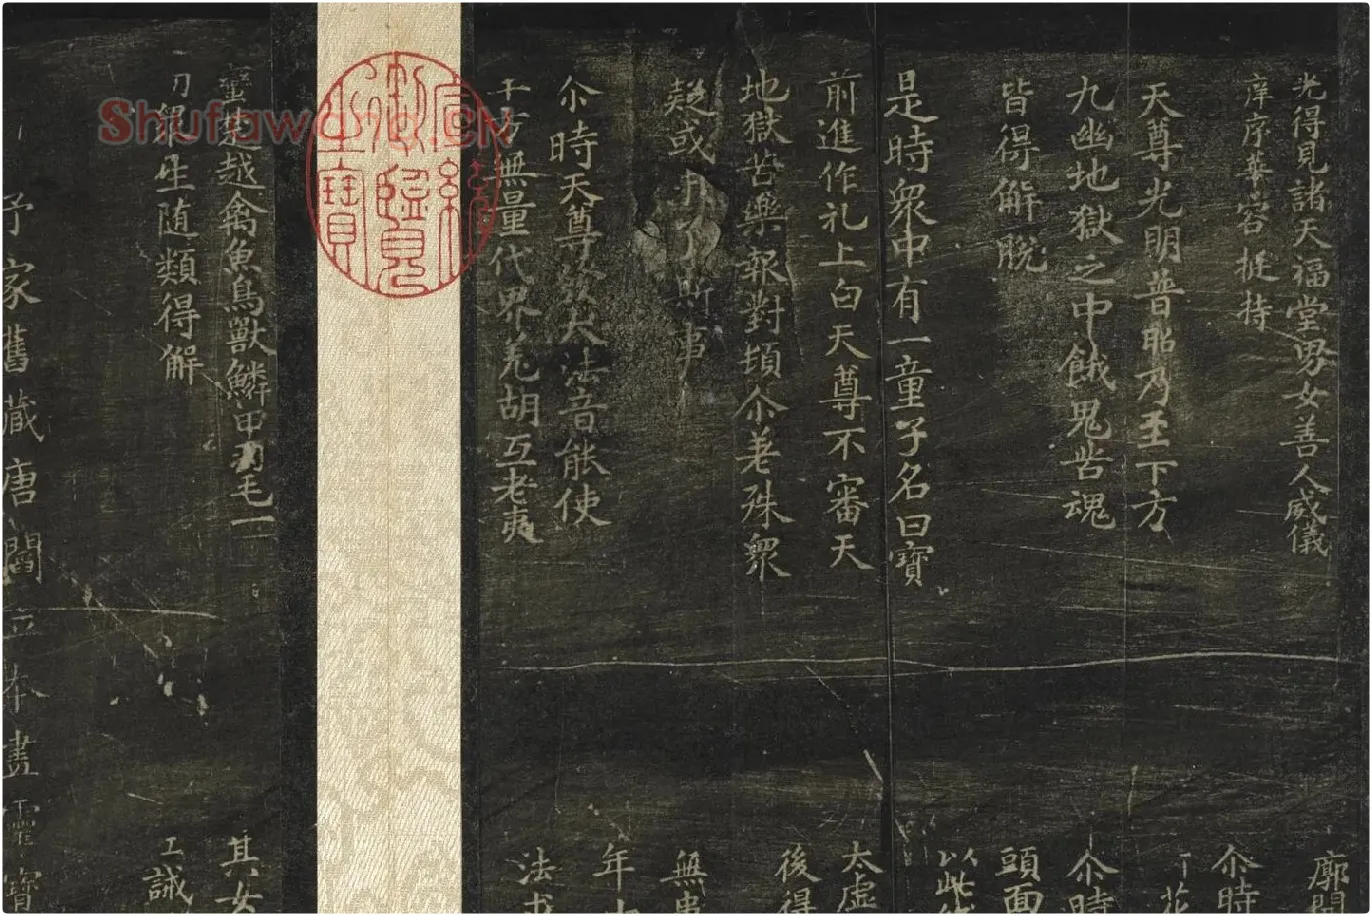 光得見諸天福堂男女善人威儀
庠序華容挺持
天尊光明普昭乃至下方
九幽地獄之中餓鬼苦魂
皆得解脫
是時眾中有一童子名曰寶
前進作礼上白天尊不審天
地獄苦樂報對損尒著殊眾
疑或
斯事
尒時天尊發大法音能使
十方無量代界羌胡互老夷
蠻楚越禽魚鳥獸鱗甲羽毛一
切眾生随類得解
予家舊藏唐閻立本畫靈寶
廓
尒時
尒時
頭面
以此
太虛
後得
無
年
法
其女
誡
宣統御覽之寶
Shufa
CN